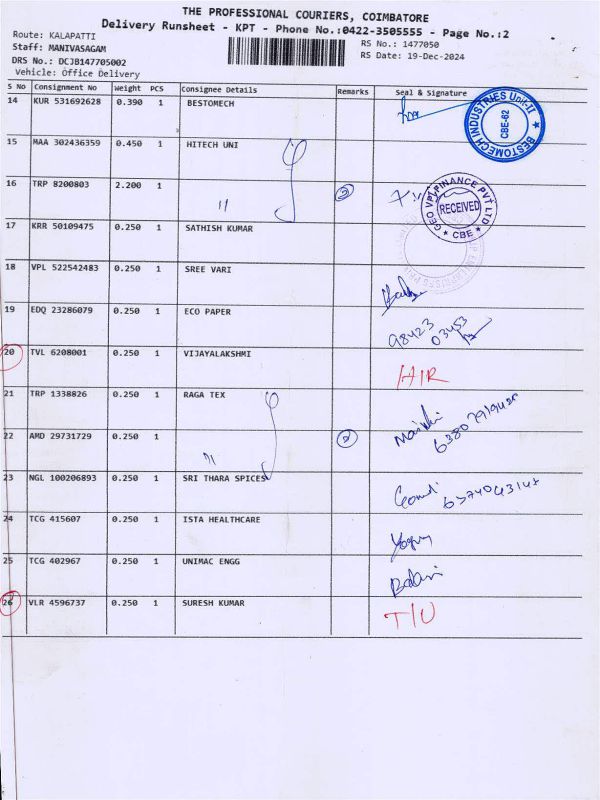 THE PROFESSIONAL COURIERS, COIMBATORE
Delivery Runsheet - KPT - Phone No.:0422-3505555 - Page No.:2
Route: KALAPATTI
Staff: MANIVASAGAM
RS No.: 1477050
DRS No.: DCJB147705002
RS Date: 19-Dec-2024
Vehicle: Office Delivery
S No Consignment No Weight PCS Consignee Details Remarks Seal & Signature
14 KUR 531692628 0.390 1 BESTOMECH
BESTOMECH INDUSTRIES Unit-II
CBE-62
15 MAA 302436359 0.450 1 HITECH UNI
16 TRP 8200803 2.200 1 " 2
GEO VPL FINANCE PVT LTD
RECEIVED
CBE
17 KRR 50109475 0.250 1 SATHISH KUMAR
18 VPL 522542483 0.250 1 SREE VARI
19 EDQ 23286079 0.250 1 ECO PAPER
98423
03453
20 TVL 6208001 0.250 1 VIJAYALAKSHMI
21 TRP 1338826 0.250 1 RAGA TEX
22 AMD 29731729 0.250 1 " 2
23 NGL 100206893 0.250 1 SRI THARA SPICES
24 TCG 415607 0.250 1 ISTA HEALTHCARE
25 TCG 402967 0.250 1 UNIMAC ENGG
26 VLR 4596737 0.250 1 SURESH KUMAR T/U